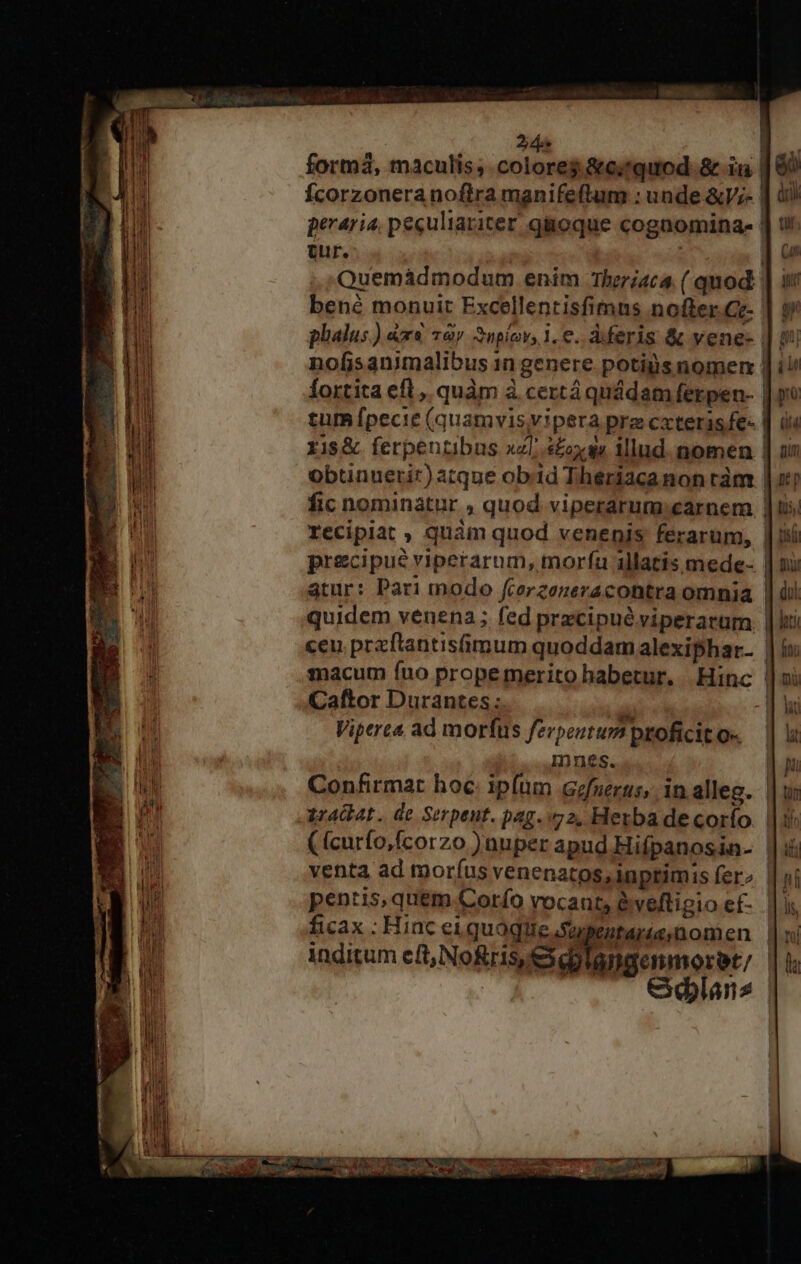 24
formâ, maculis, colores &c. quod & in
ſcorzonera noſtra manifeſtum : unde & Vi-
peraria peculiariter quoque cognomina-
tur.
Quemàdmodum enim Theriaca ( quod
benè monuit Excellentisſimus noſter Ce-
phalus ) ἀπὸ τῶν ϑηρίων, i. e. à feris & vene-
noſis animalibus in genere potiùs nomen
ſortita eſt, quàm à certâ quâdam ſerpen-
tum ſpecie (quamvis vipera præ cæteris fe-
ris & ſerpentibus κατ᾽ ἐξοχὴν illud nomen
obtinuerit) atque ob id Theriaca non tàm
ſic nominatur , quod viperarum carnem
recipiat , quàm quod venenis ferarum,
præcipuè viperarum, morſu illatis mede-
atur: Pari modo ſcorzonera contra omnia
quidem venena ; ſed præcipuè viperarum
ceu præſtantisſimum quoddam alexiphar-
macum ſuo propemerito habetur. Hinc
Caſtor Durantes :
Viperea ad morſus ſerpentum proficit o-
mnes.
Confirmat hoc ipſum Geſnerus, in alleg.
tractat. de Serpent. pag. 72, Herba de corſo
( ſcurſo, ſcorzo ) nuper apud Hiſpanos in-
venta ad morſus venenatos, inprimis ſer-
pentis, quem Corſo vocant, è veſtigio ef-
ficax : Hinc ei quoque Serpentariæ, nomen
inditum eſt, Noſtris, Schlangenmordt/
Schlan-